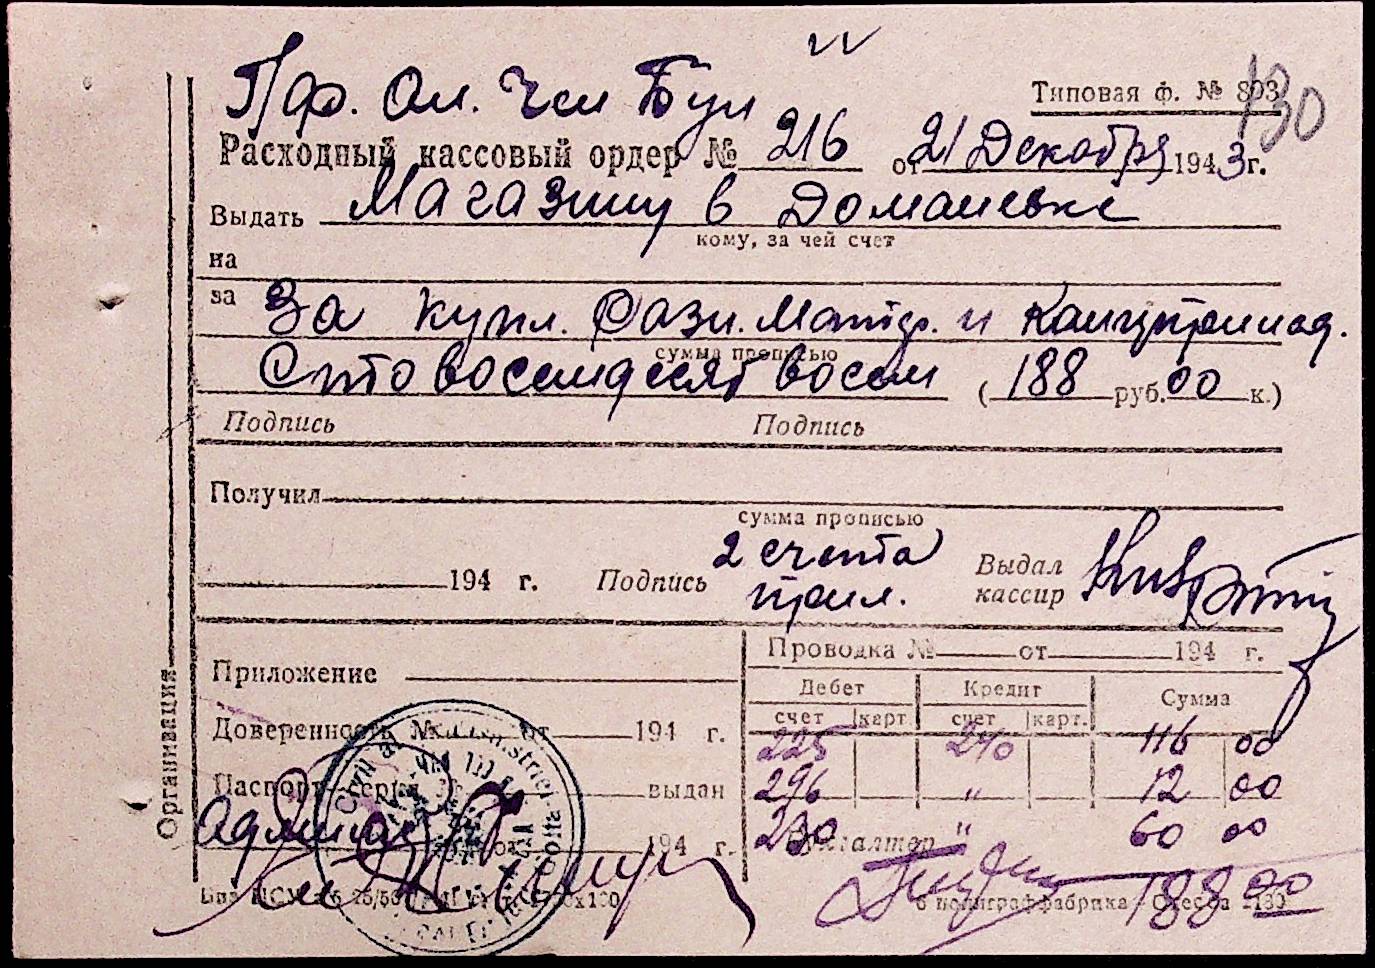 130
Типовая ф. № 893
Расходный кассовый ордер № 216 от 21 Декабря 1943 г.
Выдать Магазину в Доманевке
кому, за чей счет
на
за За купл. разн. Матер. и Канцпринад.
сумма прописью
Сто восемдесят восем (188 руб. 00 к.)
Подпись Подпись
Получил
сумма прописью
2 счета
194 г. Подпись прил. Выдал кассир
Организация
Приложение
Проводка № от 194 г.
Дебет Кредит Сумма
счет карт. счет карт.
Доверенность № от 194 г.
225 240 116 00
Паспорт серия № выдан
296 " 12 00
194 г.
230 Бухгалтер " 60 00
188 00
6 полиграффабрика - Одесса